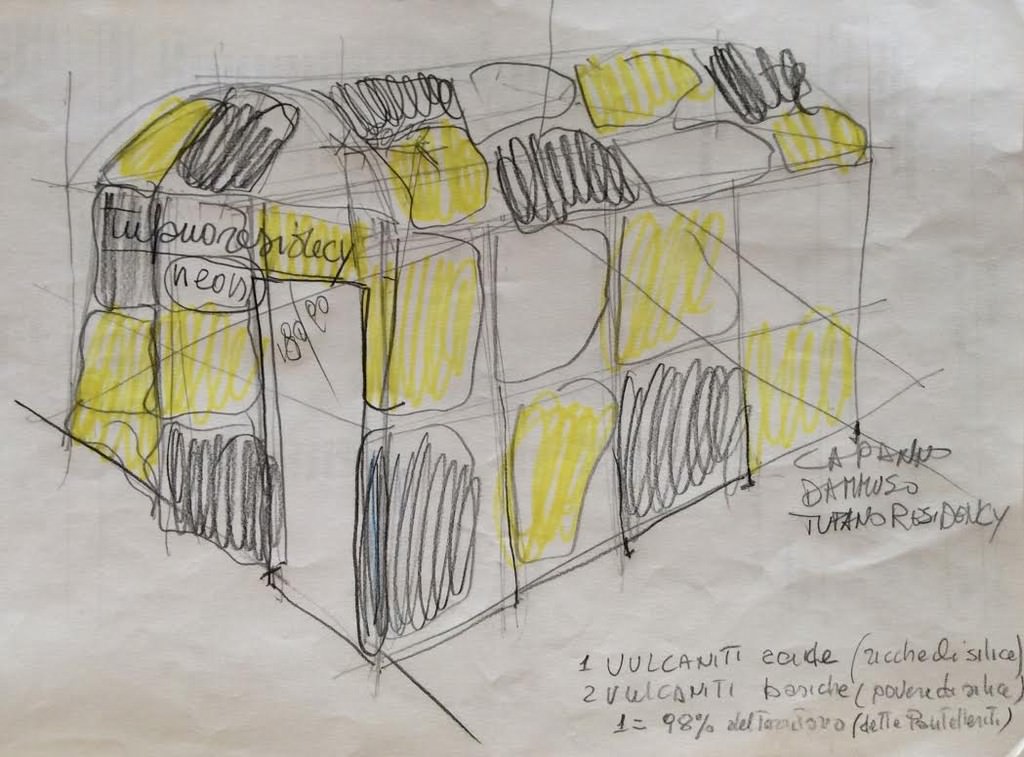 Tupanoresidecy
neon
180/00
CAPANNO
DAMMUSO
TUPANO RESIDENCY
1 VULCANITI acide (ricche di silice)
2 VULCANITI basiche (povere di silice)
1 = 98% del Territorio (dette Pantelleriti)